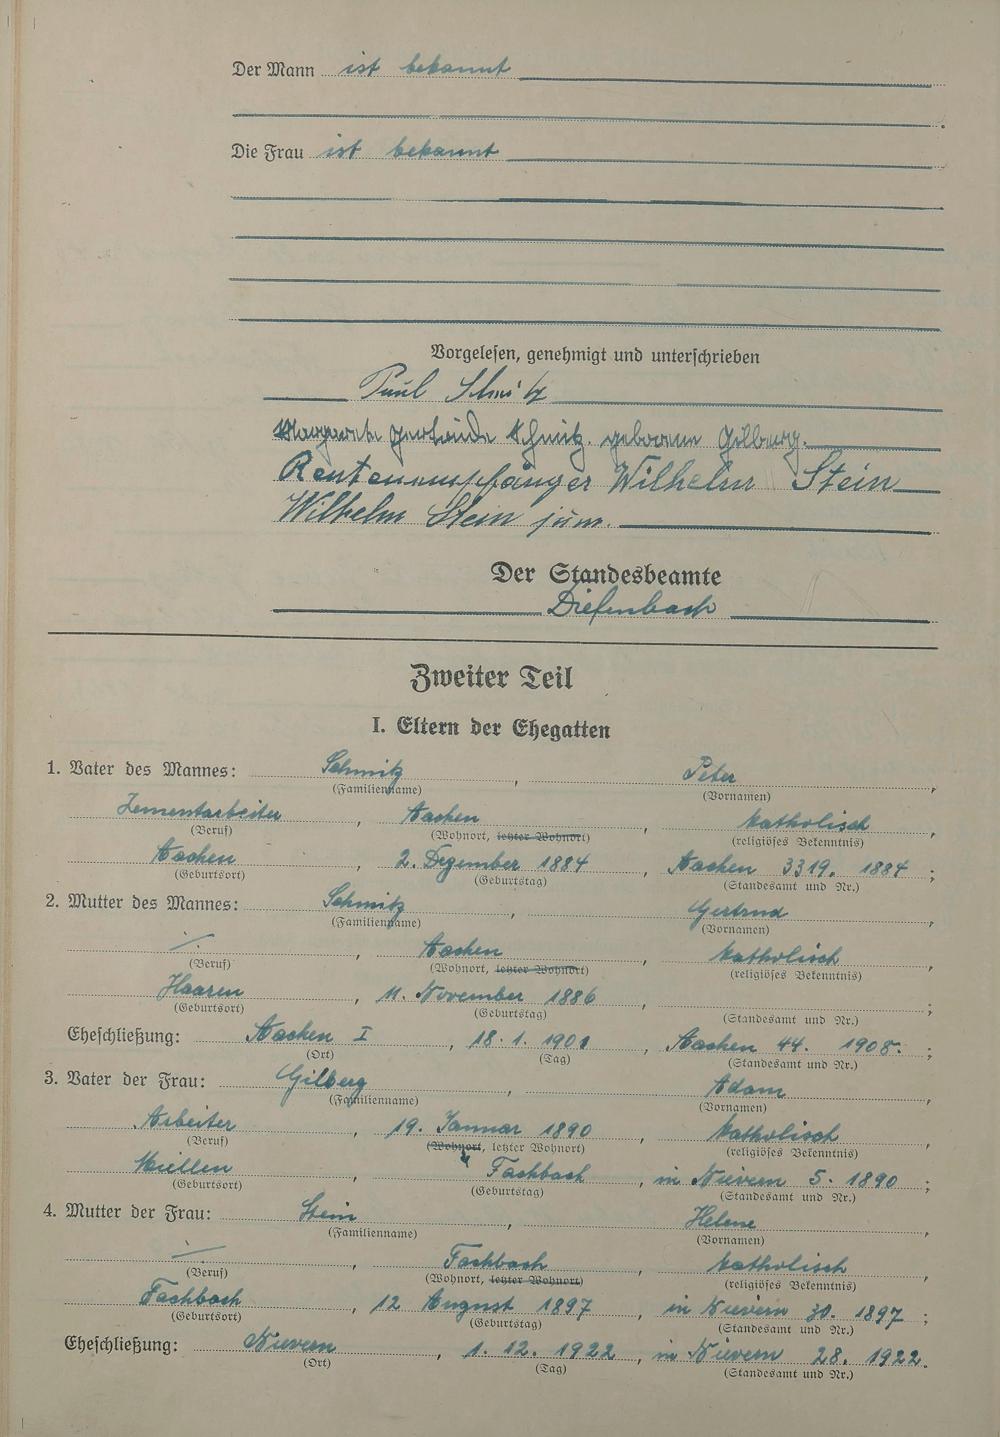 Der Mann ist bekannt
Die Frau ist bekannt
Vorgelesen, genehmigt und unterschrieben
Paul Schmitz
Margarete Gertrude Schmitz. geborene Gilberg.
Rentenempfänger Wilhelm Stein
Wilhelm Stein jun.
Der Standesbeamte
Diefenbach
Zweiter Teil
I. Eltern der Ehegatten
1. Vater des Mannes: Schmitz, Peter,
(Familienname) (Vornamen)
Zementarbeiter, Aachen, katholisch,
(Beruf) (Wohnort, letzter Wohnort) (religiöses Bekenntnis)
Aachen, 2. Dezember 1884, Aachen 3319. 1884;
(Geburtsort) (Geburtstag) (Standesamt und Nr.)
2. Mutter des Mannes: Schmitz, Gertrud,
(Familienname) (Vornamen)
/., Aachen, katholisch,
(Beruf) (Wohnort, letzter Wohnort) (religiöses Bekenntnis)
Haaren, 11. November 1886, ;
(Geburtsort) (Geburtstag) (Standesamt und Nr.)
Eheschließung: Aachen I, 18. 1. 1908, Aachen 44. 1908.;
(Ort) (Tag) (Standesamt und Nr.)
3. Vater der Frau: Gilberg, Adam,
(Familienname) (Vornamen)
Arbeiter, 19. Januar 1890, katholisch,
(Beruf) (Wohnort, letzter Wohnort) (religiöses Bekenntnis)
Miellen, Fachbach, in Nievern 5. 1890;
(Geburtsort) (Geburtstag) (Standesamt und Nr.)
4. Mutter der Frau: Stein, Helene,
(Familienname) (Vornamen)
/., Fachbach, katholisch,
(Beruf) (Wohnort, letzter Wohnort) (religiöses Bekenntnis)
Fachbach, 12 August 1897, in Nievern 30. 1897;
(Geburtsort) (Geburtstag) (Standesamt und Nr.)
Eheschließung: Nievern, 1. 12. 1922, in Nievern 28. 1922.
(Ort) (Tag) (Standesamt und Nr.)